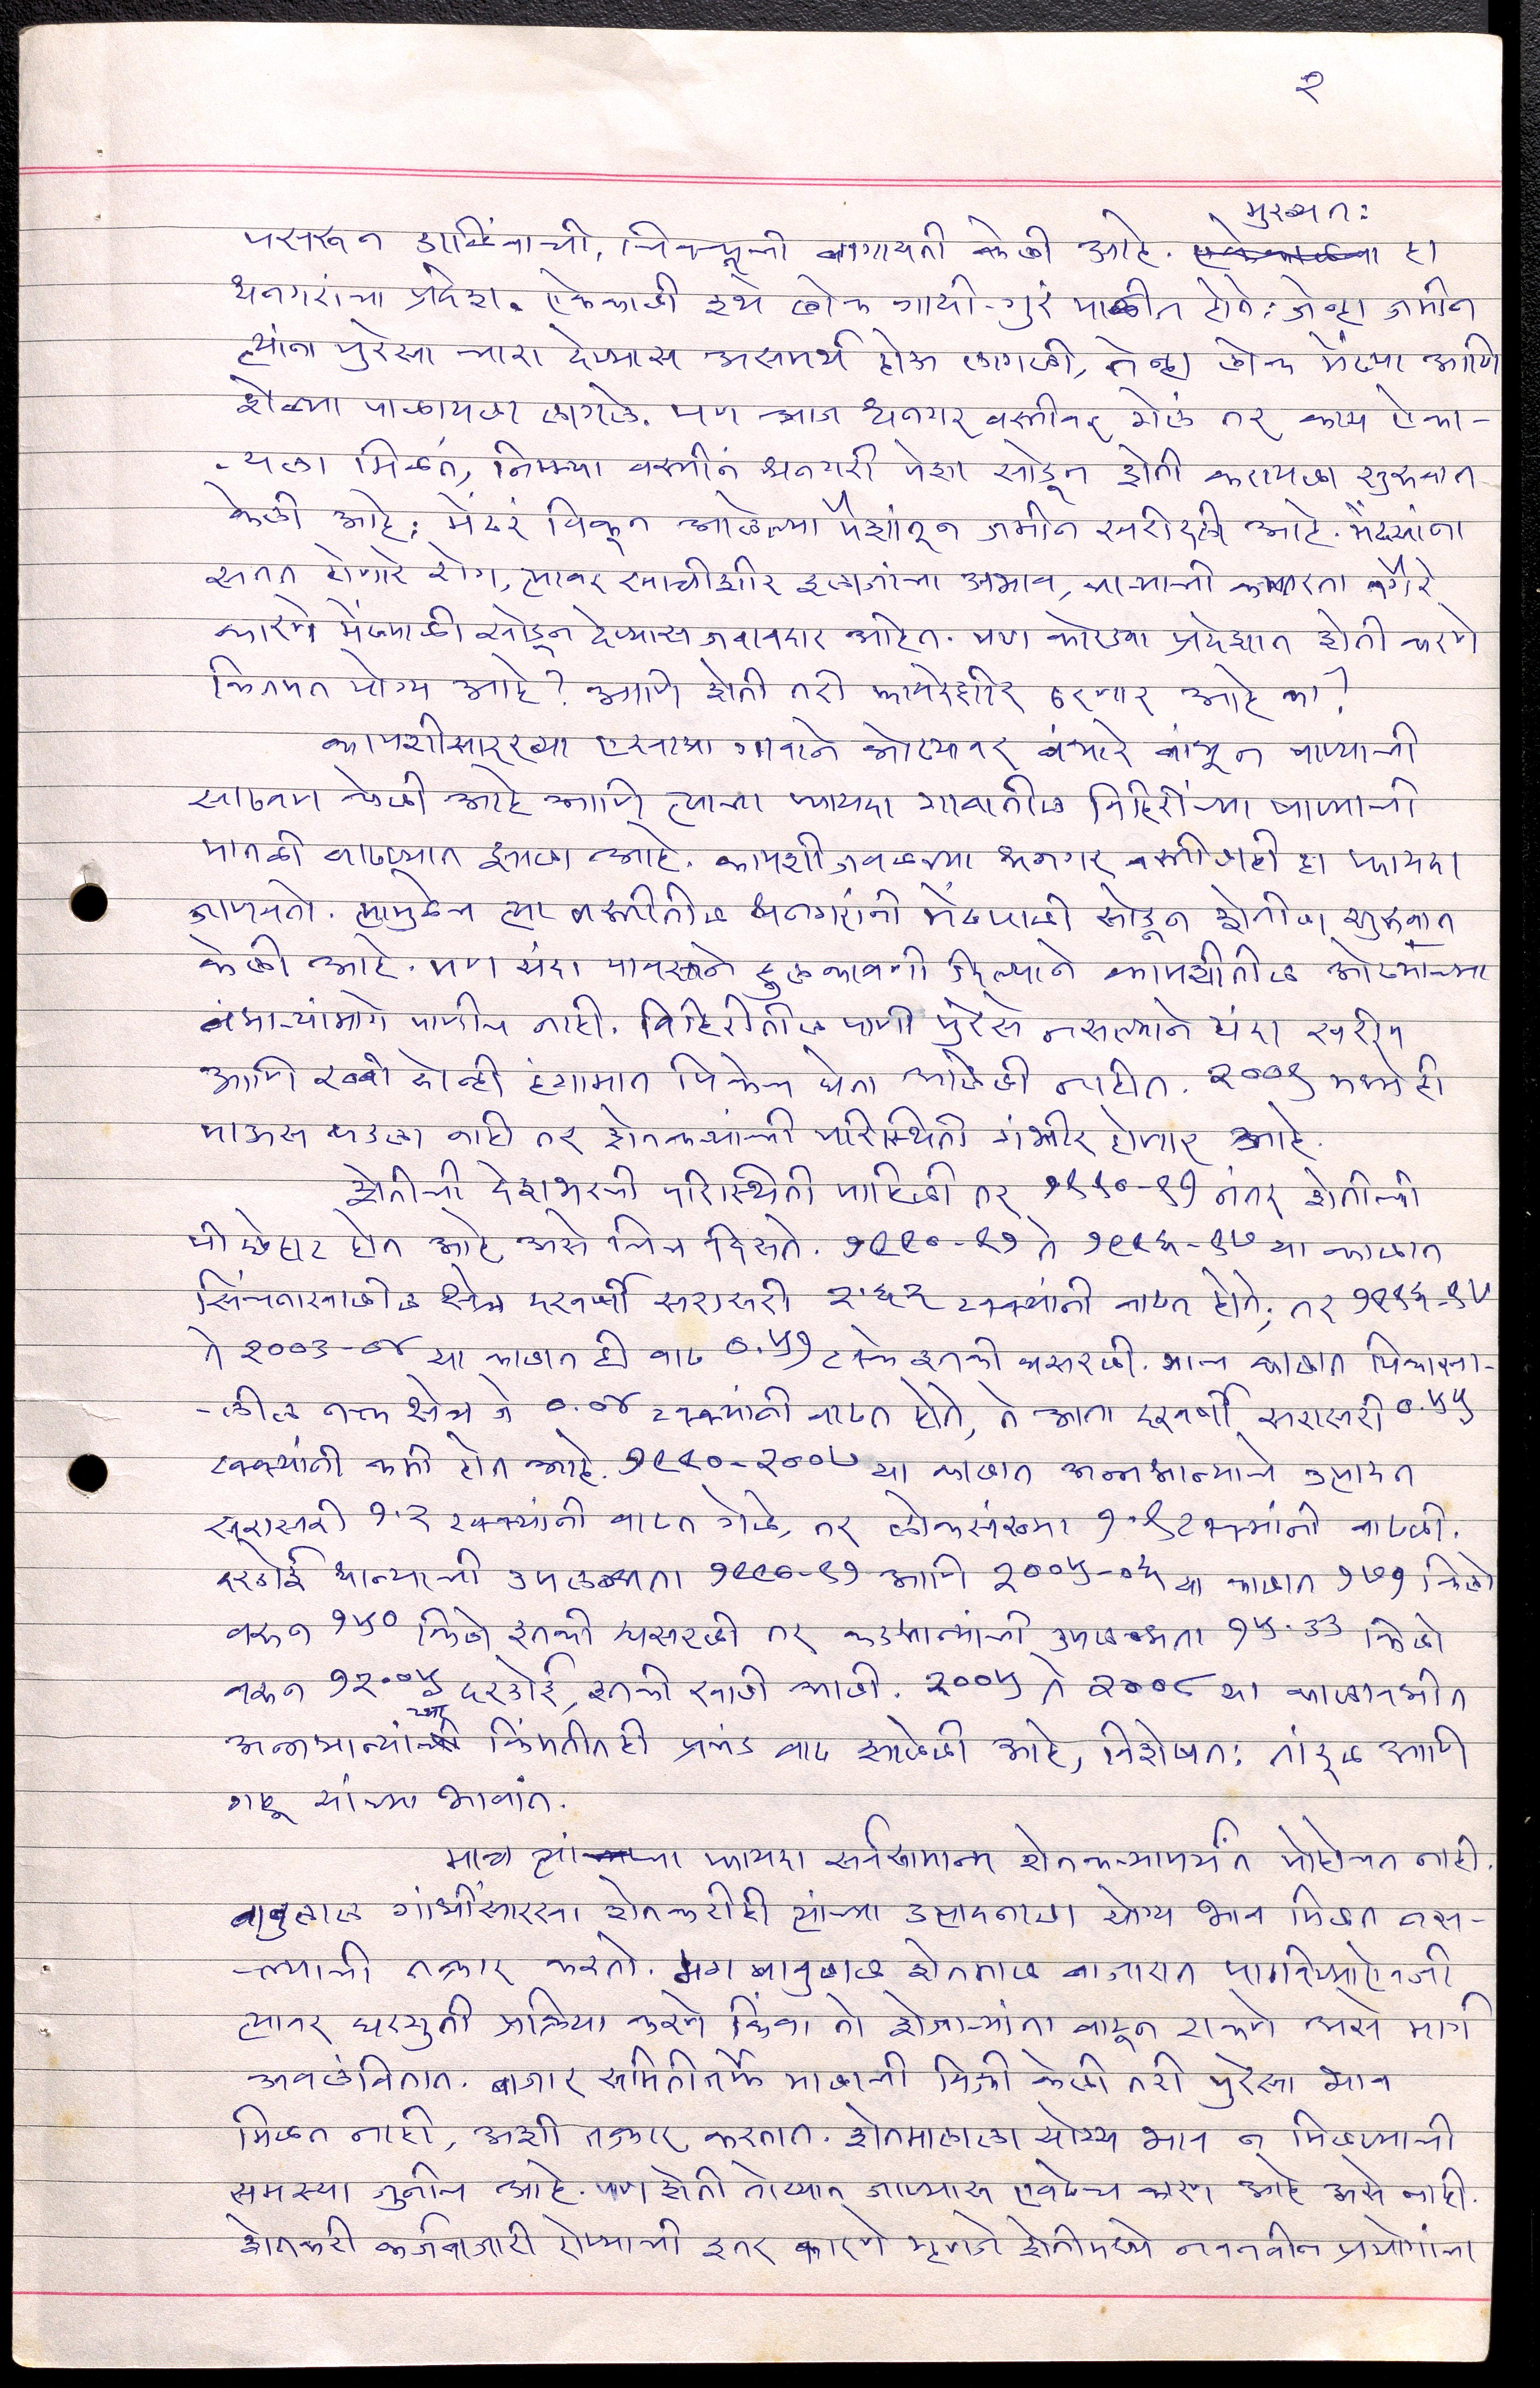 २
मुख्यतः
पसरून डाळिंबाची, चिक्कूची बागायती केली आहे. हा
धनगरांचा प्रदेश. ऐकेकाळी इथे लोक गायी-गुरं पाळीत होते; जेव्हा जमीन
त्यांना पुरेसा चारा देण्यास असमर्थ होऊ लागली, तेव्हा लोक मेंढ्या आणि
शेळ्या पाळायला लागले. पण आज धनगर वस्तीवर गेलं तर काय ऐका-
-यला मिळतं, निम्म्या वस्तीनं धनगरी पेशा सोडून शेती करायला सुरुवात
केली आहे; मेंढरं विकून आलेल्या पैशांतून जमीन खरीदली आहे. मेंढ्यांना
सतत होणारे रोग, त्यावर खात्रीशीर इलाजांचा अभाव, चाऱ्याची कमतरता वगैरे
कारणे मेंढपाळी सोडून देण्यास जबाबदार आहेत. पण कोरड्या प्रदेशात शेती करणे
कितपत योग्य आहे? आणि शेती तरी फायदेशीर ठरणार आहे का?
कापशीसारख्या एखाद्या गावाने ओढ्यावर बंधारे बांधून पाण्याची
साठवण केली आहे आणि त्याचा फायदा गावातील विहिरींच्या पाण्याची
पातळी वाढण्यात झाला आहे. कापशीजवळच्या धनगर वस्तीलाही हा फायदा
जाणवतो. त्यामुळेच त्या वस्तीतील धनगरांनी मेंढपाळी सोडून शेतीला सुरुवात
केली आहे. पण यंदा पावसाने हुलकावणी दिल्याने कापशीतील ओढ्याच्या
बंधाऱ्यांमागे पाणीच नाही. विहिरीतील पाणी पुरेसे नसल्याने यंदा खरीप
आणि रब्बी दोन्ही हंगामात पिकेच घेता आलेली नाहीत. २००९ मध्ये ही
पाऊस पडला नाही तर शेतकऱ्यांची परिस्थिती गंभीर होणार आहे.
शेतीची देशभरची परिस्थिती पाहिली तर १९९०-९१ नंतर शेतीची
पीछेहाट होत आहे असे चित्र दिसते. १९९०-९१ ते १९९६-९७ या काळात
सिंचनाखालील क्षेत्र दरवर्षी सरासरी २.६२ टक्क्यांनी वाढत होते; तर १९९६-९७
ते २००३-०४ या काळात ही वाढ ०.५१ टक्के इतकी घसरली. याच काळात पिकाखा-
-लील क्षेत्र जे ०.०४ टक्क्यांनी वाढत होते, ते आता दरवर्षी सरासरी ०.५५
टक्क्यांनी कमी होत आहे. १९९०-२००७ या काळात अन्नधान्याचे उत्पादन
सरासरी १.२ टक्क्यांनी वाढत गेले, तर लोकसंख्या १.९ टक्क्यांनी वाढली.
दरडोई धान्याची उपलब्धता १९९०-९१ आणि २००५-०६ या काळात १७१ किलो
वरून १५० किलो इतकी घसरली तर कडधान्यांची उपलब्धता १५.३३ किलो
वरून १२.०५ दरडोई, इतकी खाली आली. २००५ ते २००८ या काळात
अन्नधान्यांच्या किंमतीतही प्रचंड वाढ झालेली आहे, विशेषतः तांदूळ आणि
गहू यांच्या भावांत.
मात्र त्यांचा फायदा सर्वसामान्य शेतकऱ्यापर्यंत पोहोचत नाही.
बाबुलाल गांधींसारखा शेतकरीही त्यांच्या उत्पादनाला योग्य भाव मिळत नस-
-ल्याची तक्रार करतो. मग बाबुलाल शेतमाल बाजारात पाठविण्याऐवजी
त्यावर घरगुती प्रक्रिया करणे किंवा तो शेजाऱ्यांना वाटून टाकणे असे मार्ग
अवलंबितात. बाजार समितीतर्फे मालाची विक्री केली तरी पुरेसा भाव
मिळत नाही, अशी तक्रार करतात. शेतमालाला योग्य भाव न मिळण्याची
समस्या जुनीच आहे. पण शेती तोट्यात जाण्यास एवढेच कारण आहे असे नाही.
शेतकरी कर्जबाजारी होण्याची इतर कारणे म्हणजे शेतीमध्ये नवनवीन प्रयोगांचा